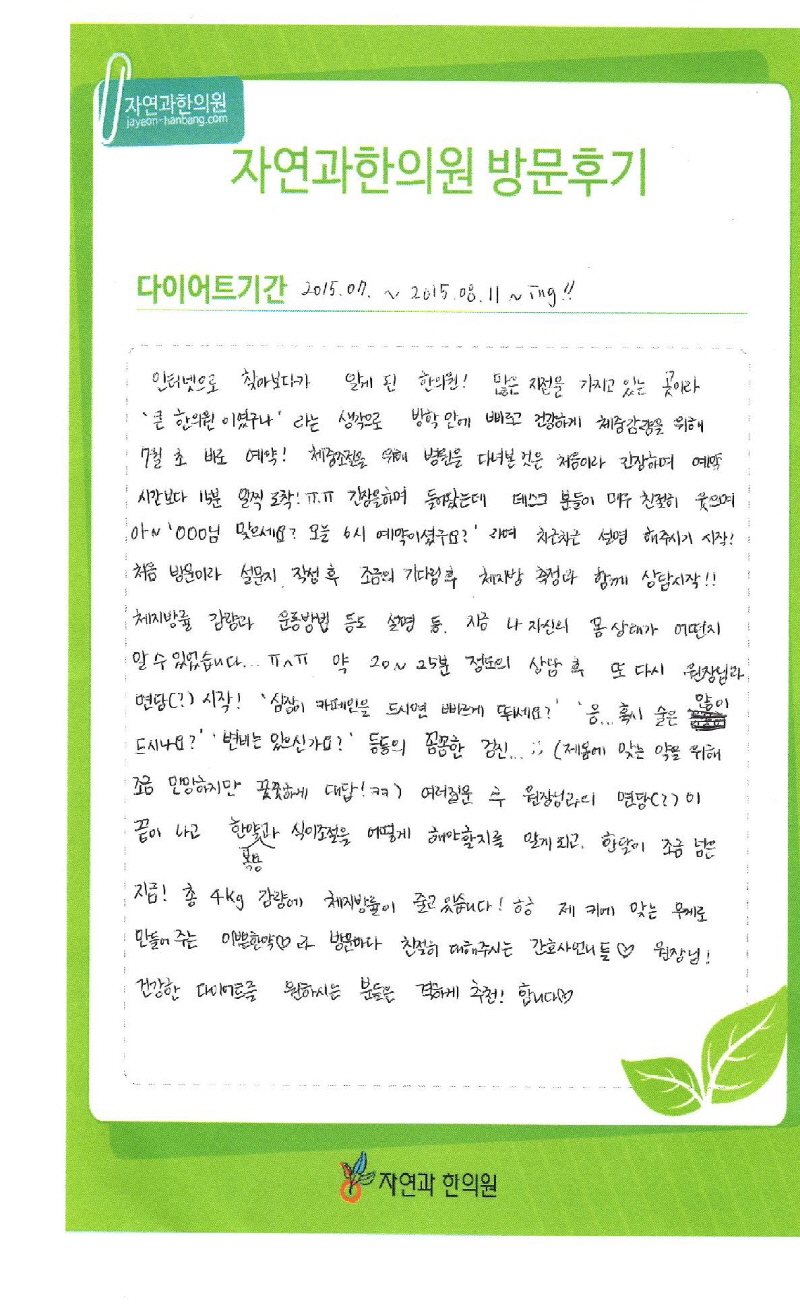 자연과한의원
jayeon-hanbang.com
자연과한의원 방문후기
다이어트기간 2015.07. ~ 2015.08.11 ~ ing!!
인터넷으로 찾아보다가 알게 된 한의원! 많은 지점을 가지고 있는 곳이라
'큰 한의원이였구나' 라는 생각으로 방학 안에 빠르고 건강하게 체중감량을 위해
7월 초 바로 예약! 체중조절을 위해 병원을 다녀본 것은 처음이라 긴장하며 예약
시간보다 15분 일찍 도착! ㅠ.ㅠ 긴장을하며 들어왔는데 데스크 분들이 매우 친절히 웃으며
아~ 'OOO님 맞으세요? 오늘 6시 예약이셨구요?' 라며 차근차근 설명 해주시기 시작!
처음 방문이라 설문지 작성 후 조금의 기다림 후 체지방 측정과 함께 상담시작!!
체지방률 감량과 운동방법 등도 설명 등. 지금 나 자신의 몸 상태가 어떤지
알 수 있었습니다... ㅠㅅㅠ 약 20~25분 정도의 상담 후 또 다시 원장님과
면담(?) 시작! '심장이 카페인을 드시면 빠르게 뛰세요?' '음... 혹시 술은 많이
드시나요?' '변비는 있으신가요?' 등등의 꼼꼼한 검진... ;; (제몸에 맞는 약을 위해
조금 민망하지만 꿋꿋하게 대답! ㅋㅋ) 여러질문 후 원장님과의 면담(?)이
끝이 나고 한약과 복용 식이조절을 어떻게 해야할지를 알게되고. 한달이 조금 넘은
지금! 총 4kg 감량에 체지방률이 줄고 있습니다! ㅎㅎ 제 키에 맞는 무게로
만들어 주는 이쁜한약♡과 방문마다 친절히 대해주시는 간호사언니들♡ 원장님!
건강한 다이어트를 원하시는 분들은 격하게 추천! 합니다♡
자연과 한의원